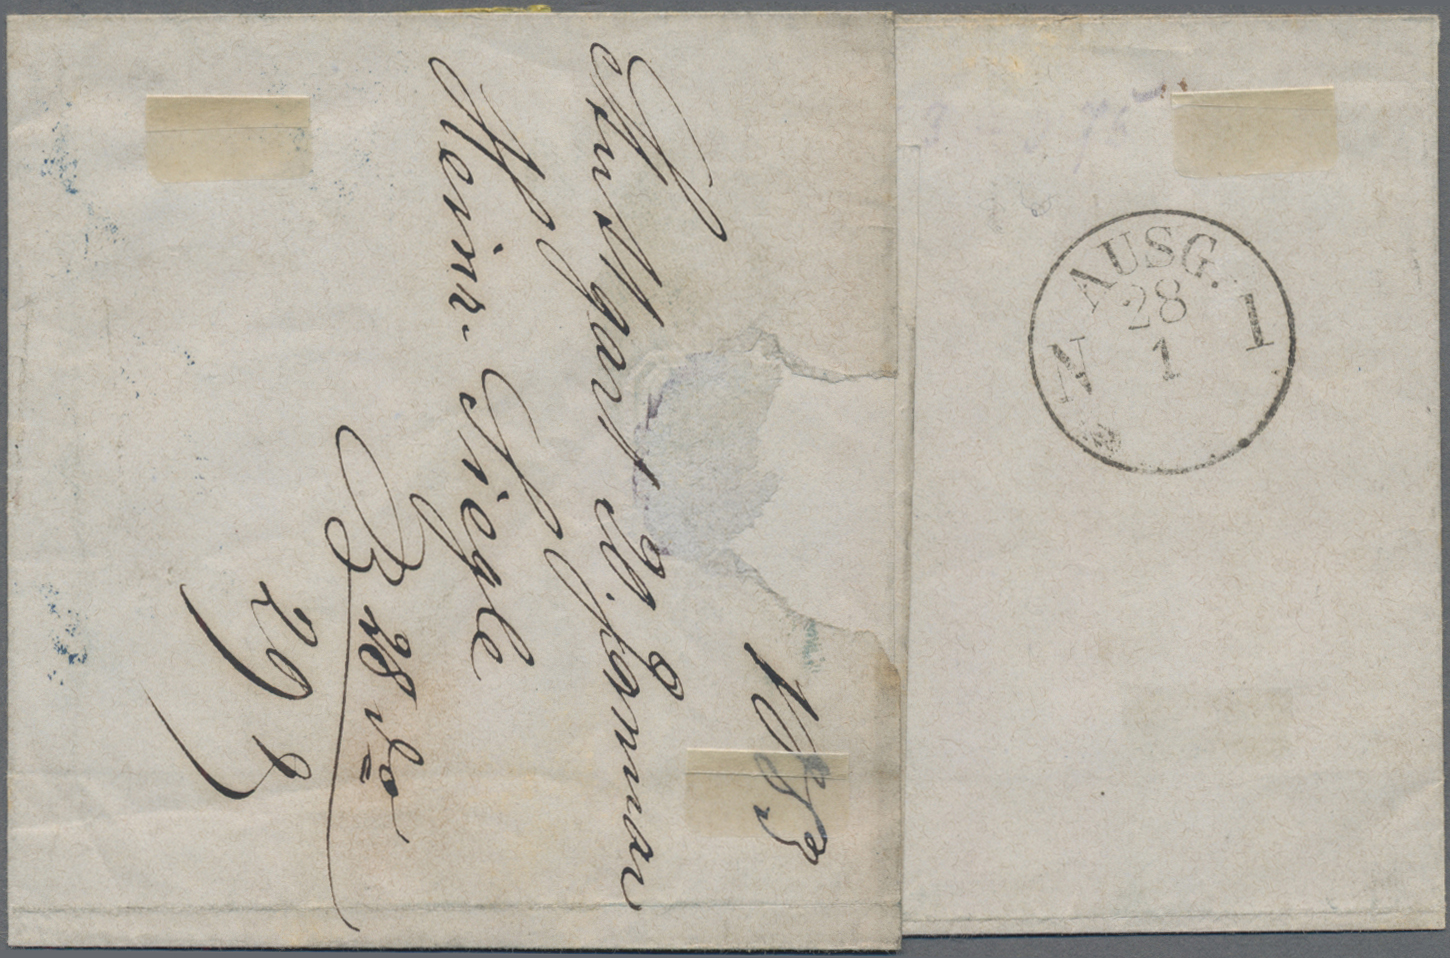 1853
Stuttgart 26. Januar
Heinr. Siegle
B 28 do
29
AUSG.
28
1
N I